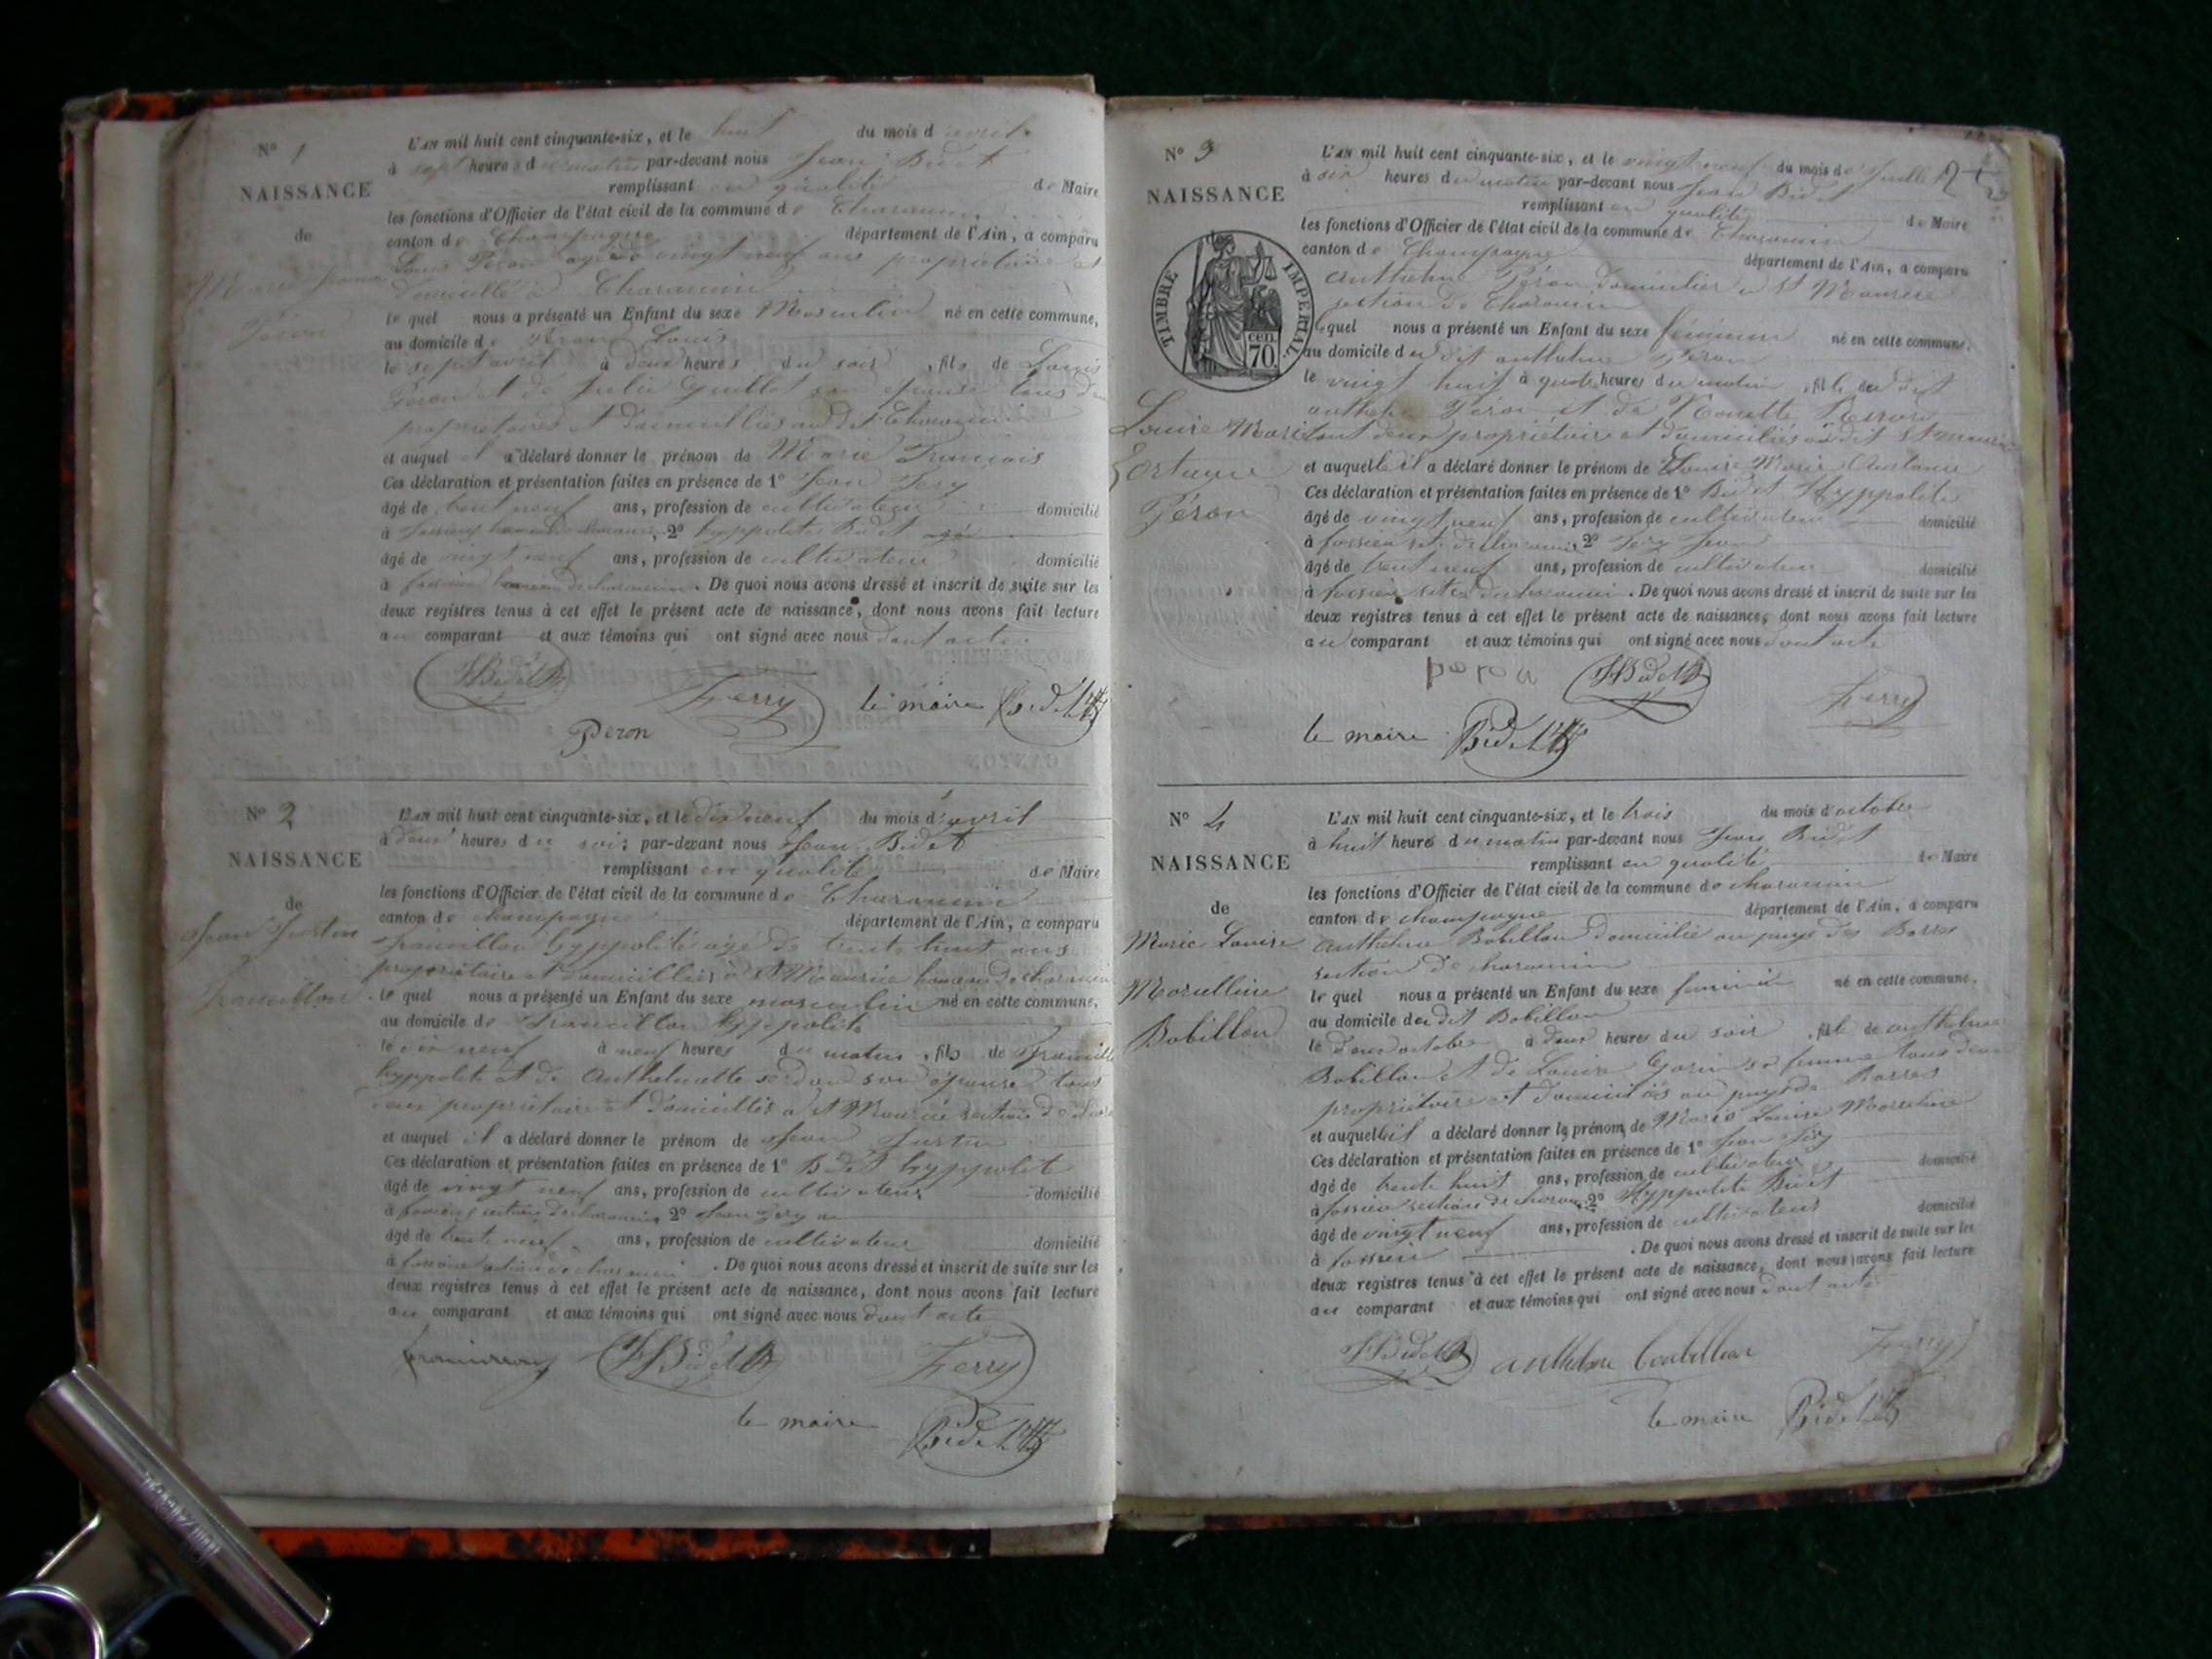 N° 1
NAISSANCE
de
Marie
Péron
L'AN mil huit cent cinquante-six, et le huit du mois d'avril
à sept heures du matin par-devant nous Jean Bidet
remplissant en qualité de Maire
les fonctions d'Officier de l'état civil de la commune de Charancin
canton de Champagne département de l'Ain, a comparu
Louis Péron agé de vingt neuf ans propriétaire et
domicillé à Charancin
le quel nous a présenté un Enfant du sexe Masculin né en cette commune,
au domicile de Péron Louis
le sept avril à deux heures du soir, fils de Louis
Péron et de Julie Guillot son épouse tous deux
propriétaires et domicilliés au dit Charancin
et auquel il a déclaré donner le prénom de Marie François
Ces déclaration et présentation faites en présence de 1° Jean
âgé de trent neuf ans, profession de cultivateur domicilié
à 2° hyppolite Bidet
âgé de vingt neuf ans, profession de cultivateur domicilié
à hameau de charancin. De quoi nous avons dressé et inscrit de suite sur les
deux registres tenus à cet effet le présent acte de naissance, dont nous avons fait lecture
au comparant et aux témoins qui ont signé avec nous dont acte.
HBidet Ferry le maire Bidet
Peron
N° 2
NAISSANCE
de
Jean Justin
L'AN mil huit cent cinquante-six, et le dix neuf du mois d'avril
à deux heures du soir par-devant nous Jean Bidet
remplissant en qualité de Maire
les fonctions d'Officier de l'état civil de la commune de Charancin
canton de champagne département de l'Ain, a comparu
hyppolite agé de trente huit ans
propriétaire et domicillier à St Maurice hameau de charancin
le quel nous a présenté un Enfant du sexe masculin né en cette commune,
au domicile de hyppolite
le dix neuf à neuf heures du matin, fils de
hyppolite et de Anthelmette son épouse tous
deux propriétaire et domicilliés à St Maurice section de
et auquel il a déclaré donner le prénom de Jean Justin
Ces déclaration et présentation faites en présence de 1° Bidet hyppolite
âgé de vingt neuf ans, profession de cultivateur domicilié
à section de charancin 2° Jean
âgé de trente neuf ans, profession de cultivateur domicilié
à section de charancin. De quoi nous avons dressé et inscrit de suite sur les
deux registres tenus à cet effet le présent acte de naissance, dont nous avons fait lecture
au comparant et aux témoins qui ont signé avec nous dont acte
HBidet Ferry
le maire Bidet
N° 3
NAISSANCE
TIMBRE IMPERIAL
cen 70.
Louise Marie
Péron
L'AN mil huit cent cinquante-six, et le vingt neuf du mois de Juillet
à six heures du matin par-devant nous Jean Bidet
remplissant en qualité de Maire
les fonctions d'Officier de l'état civil de la commune de Charancin
canton de Champagne département de l'Ain, a comparu
Anthelme Péron domicilier à St Maurice
section de Charancin
le quel nous a présenté un Enfant du sexe féminin né en cette commune.
au domicile du dit anthelme Péron
le vingt huit à quatre heures du matin, fille du dit
anthelme Péron et de
tout deux propriétaire et domiciliés au dit St maurice
et auquelle il a déclaré donner le prénom de Louise Marie
Ces déclaration et présentation faites en présence de 1° Bidet Hyppolite
âgé de vingt neuf ans, profession de cultivateur domicilié
à 2° Jean
âgé de trent neuf ans, profession de cultivateur domicilié
à. De quoi nous avons dressé et inscrit de suite sur les
deux registres tenus à cet effet le présent acte de naissance, dont nous avons fait lecture
au comparant et aux témoins qui ont signé avec nous dont acte
peron HBidet Ferry
le maire Bidet
N° 4
NAISSANCE
de
Marie Louise
Marcelline
Bobillon
L'AN mil huit cent cinquante-six, et le trois du mois d'octobre
à huit heures du matin par-devant nous Jean Bidet
remplissant en qualité de Maire
les fonctions d'Officier de l'état civil de la commune de charancin
canton de champagne département de l'Ain, a comparu
Anthelme Bobillon domicilié au pays des Barres
section de charancin
le quel nous a présenté un Enfant du sexe feminin né en cette commune.
au domicile du dit Bobillon
le deux octobre à deux heures du soir, fille de anthelme
Bobillon et de Louise Gorin sa femme tous deux
propriétaire et domiciliés au pays de Barres
et auquelle il a déclaré donner le prénom de Marie Louise Marceline
Ces déclaration et présentation faites en présence de 1° Jean
âgé de trente huit ans, profession de cultivateur domicilié
à section de 2° Hyppolite Bidet
âgé de vingt neuf ans, profession de cultivateur domicilié
à. De quoi nous avons dressé et inscrit de suite sur les
deux registres tenus à cet effet le présent acte de naissance, dont nous avons fait lecture
au comparant et aux témoins qui ont signé avec nous dont acte
HBidet anthelme bobillon Ferry
le maire Bidet